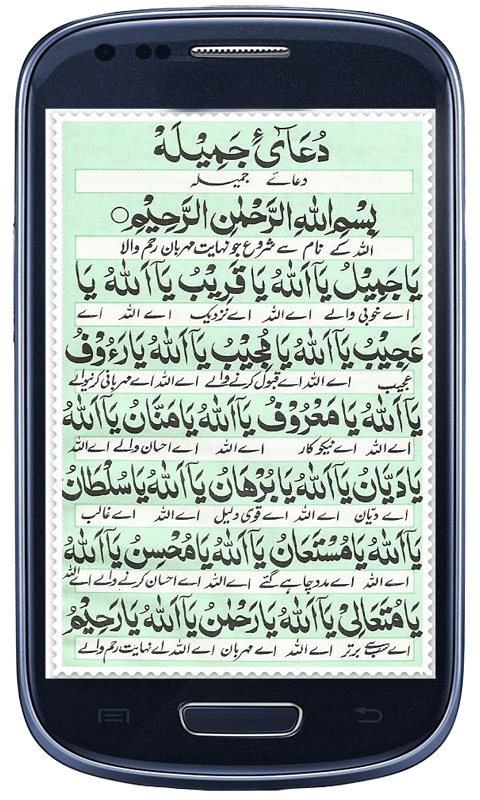 دُعَآئِ جَمِيْلَهْ
دعائے جمیلہ
بِسْمِ اللهِ الرَّحْمٰنِ الرَّحِيْمِ
اللہ کے نام سے شروع جو نہایت مہربان رحم والا
يَا جَمِيْلُ يَآ اَللهُ يَا قَرِيْبُ يَآ اَللهُ يَا
اے خوبی والے اے اللہ اے نزدیک اے اللہ اے
عَجِيْبُ يَآ اَللهُ يَا مُجِيْبُ يَآ اَللهُ يَا رَءُوْفُ
عجیب اے اللہ اے قبول کرنے والے اے اللہ اے مہربانی کرنیوالے
يَآ اَللهُ يَا مَعْرُوْفُ يَآ اَللهُ يَا مَنَّانُ يَآ اَللهُ
اے اللہ اے نیکو کار اے اللہ اے احسان والے اے اللہ
يَا دَيَّانُ يَآ اَللهُ يَا بُرْهَانُ يَآ اَللهُ يَا سُلْطَانُ
اے دیان اے اللہ اے قوی دلیل اے اللہ اے غالب
يَآ اَللهُ يَا مُسْتَعَانُ يَآ اَللهُ يَا مُحْسِنُ يَآ اَللهُ
اے اللہ اے مدد چاہے گئے اے اللہ اے احسان کرنے والے اے اللہ
يَا مُتَعَالِيْ يَآ اَللهُ يَا رَحْمٰنُ يَآ اَللهُ يَا رَحِيْمُ
اے سب سے برتر اے اللہ اے مہربان اے اللہ اے نہایت رحم والے